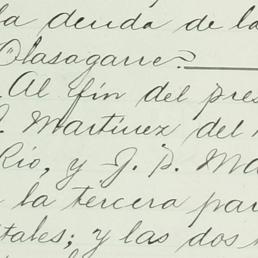 la deuda de la
Olasagarre?
Al fin del pres
J. Martinez del
Rio, y J. P. Ma
la tercera par
tales; y las dos